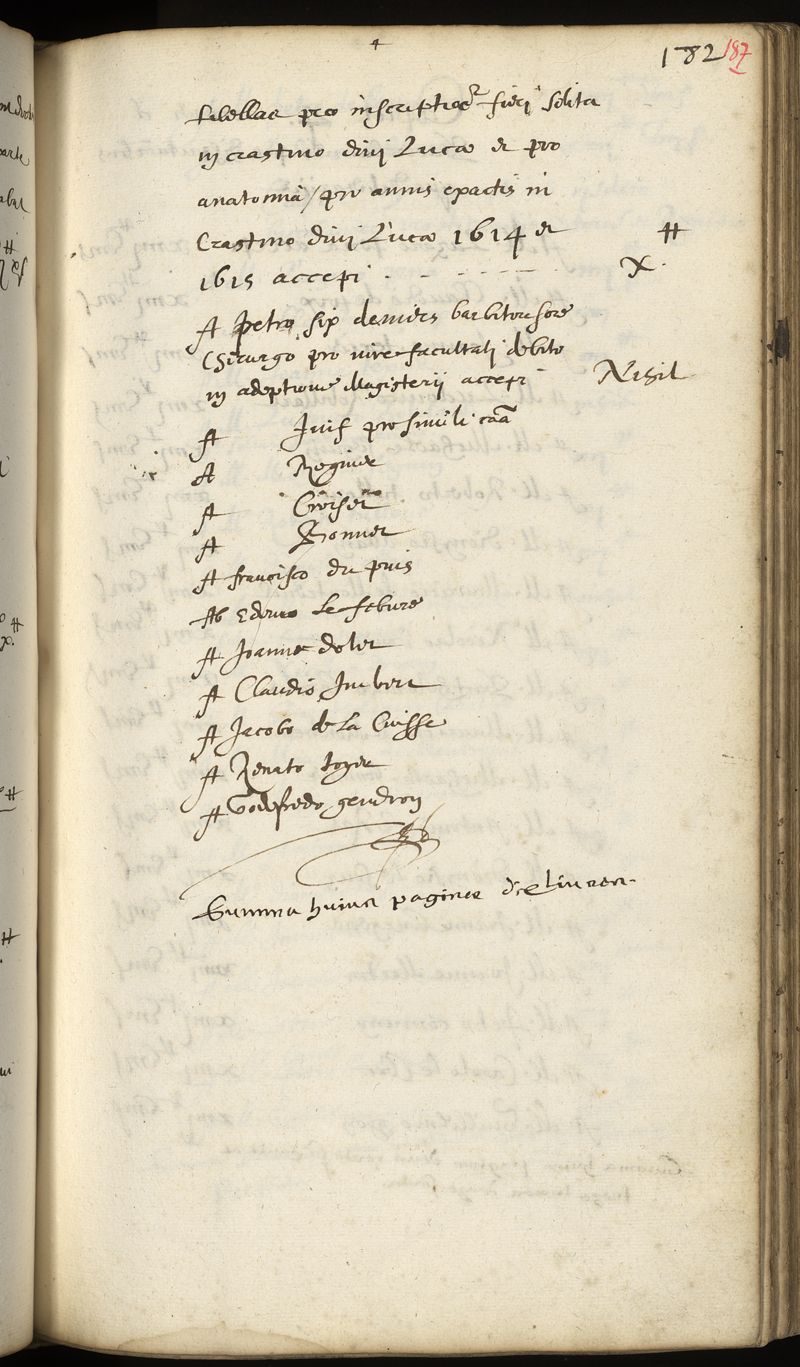 182 187
libellae pro inscriptione fieri solita
in crastino divi Lucae et pro
anatomia / pro annis exactis in
Crastino divi Lucae 1614 et
1615 accepi X ₶
A Petro six deniers barbitonsore
Chirurgo pro iure facultati debito
in adeptione Magisterii accepi Nihil
A Juif pro simili caa
A Regnier
A
A Bonnet
A francisco du puis
Ab le febure
A Joanne dolet
A Claudio Imbert
A Jacobo de la Cuisse
A Renato
A Godefredo gendron
Summa huius paginae